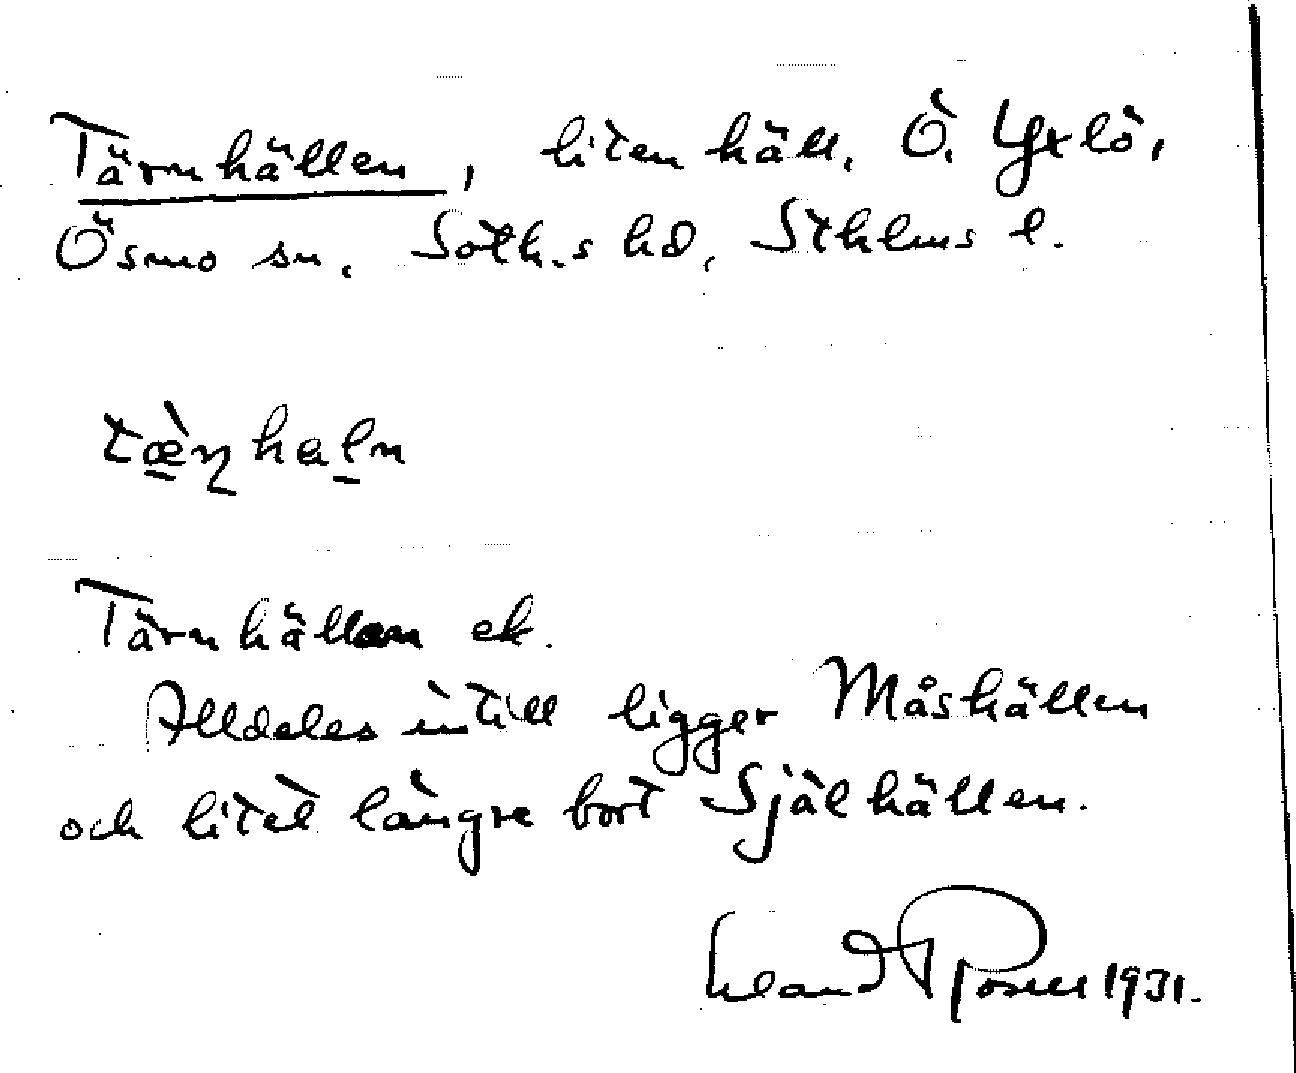 Tärnhällen, liten häll, Ö. Yxlö,
Ösmo sn, Soth.s hd, Sthlms l.
Tärnhällan ek.
Alldeles intill ligger Måshällen
och litet längre bort Själhällen.
1931.